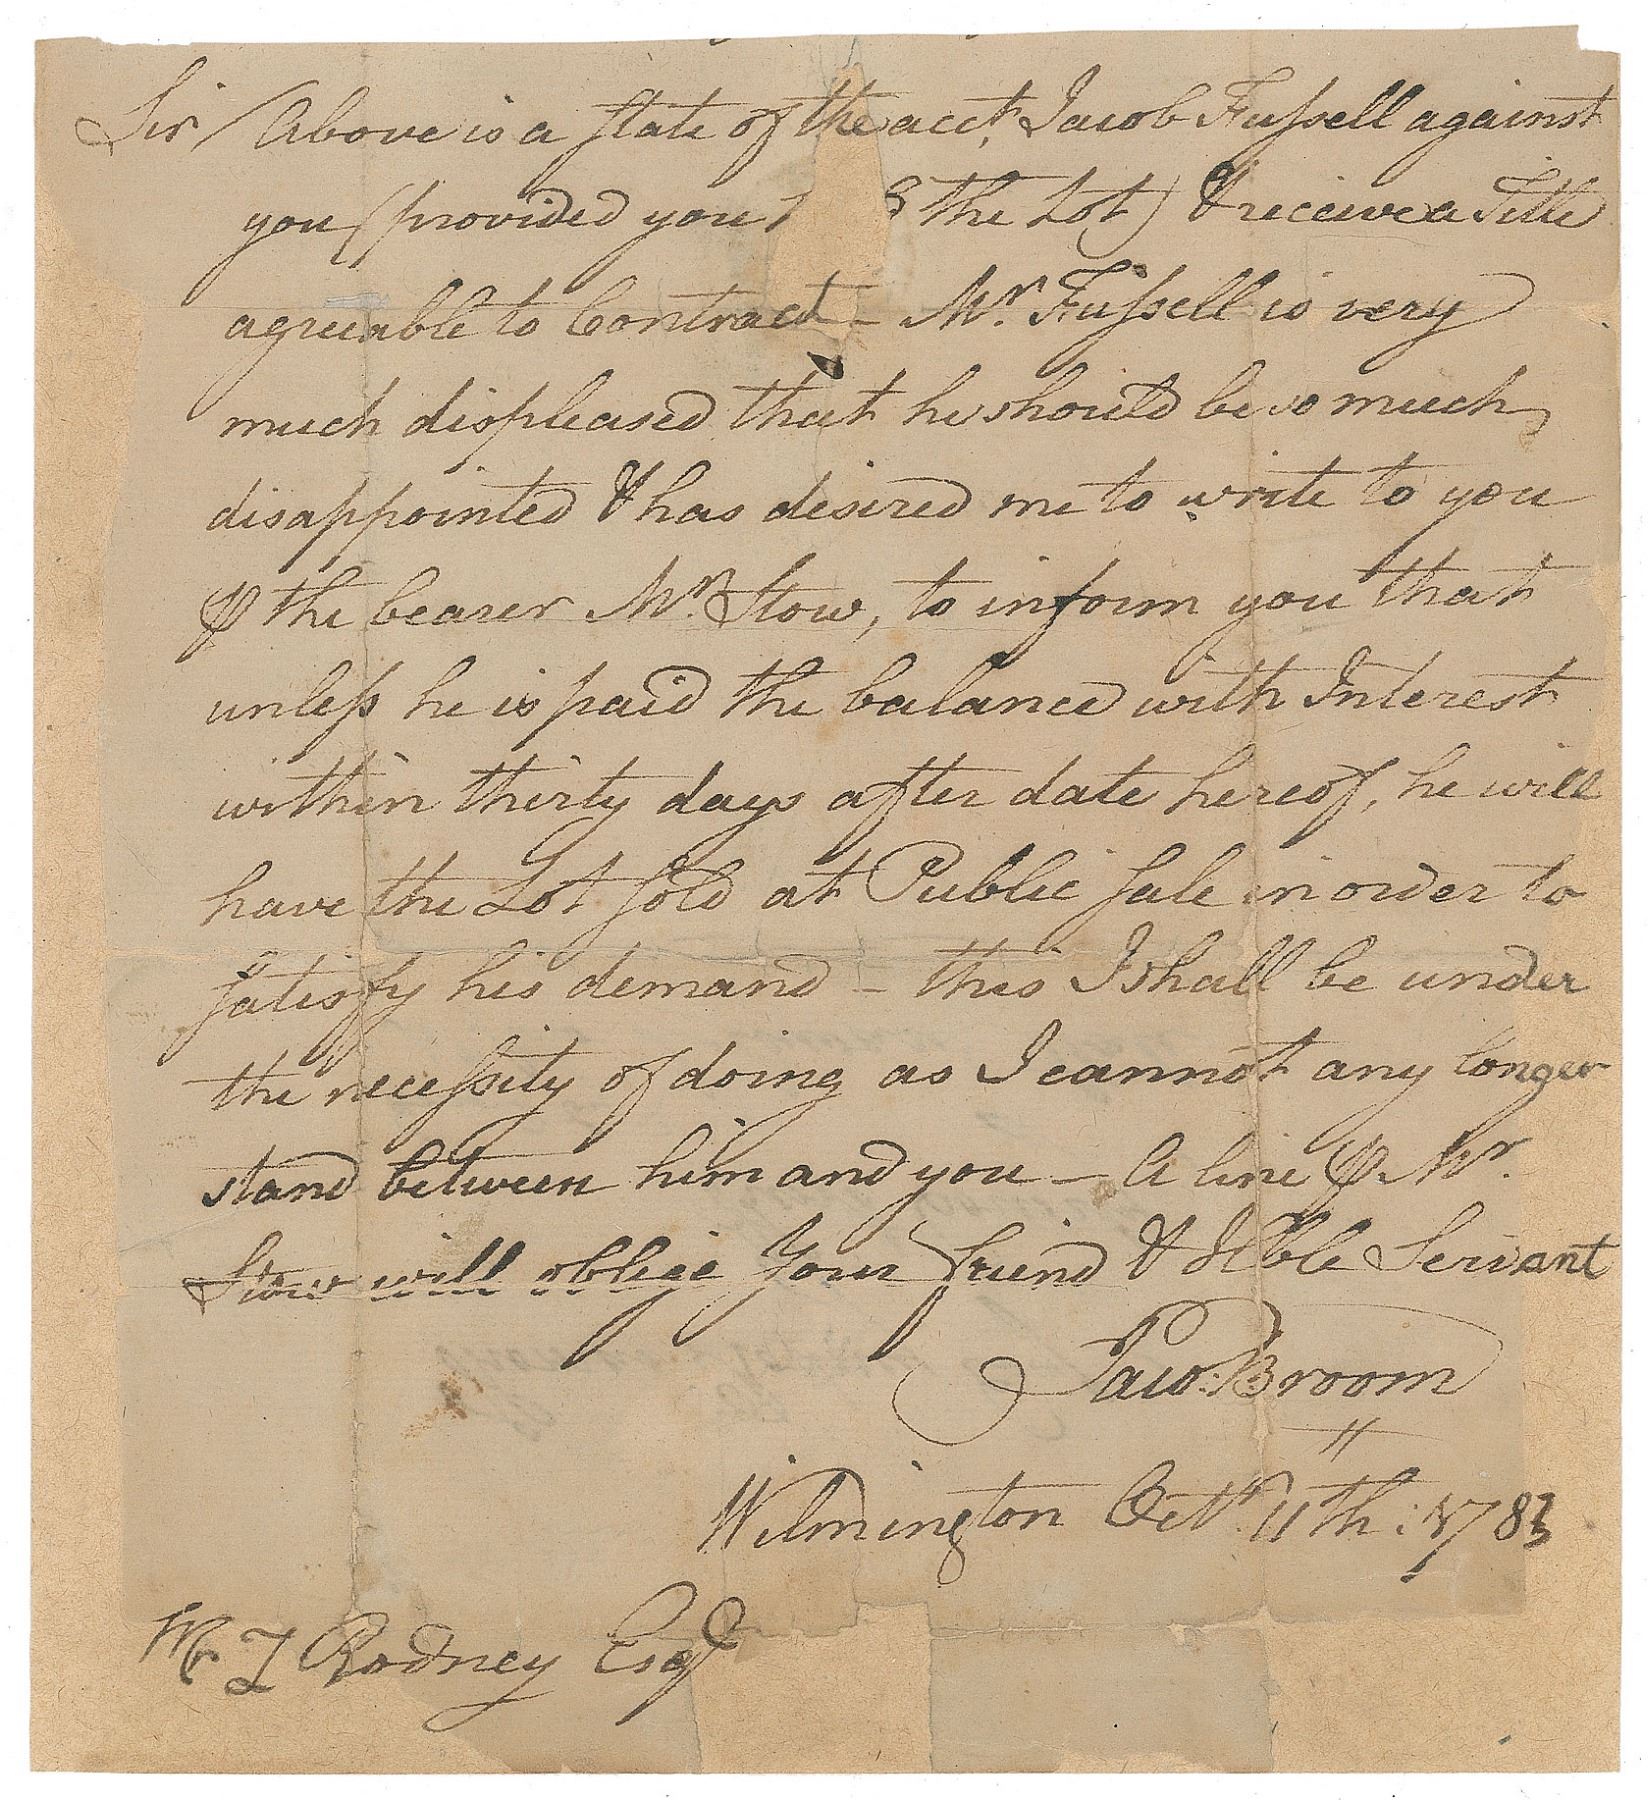 Sir / Above is a state of the acct. Jacob Fussell against
you (provided you the Lot) & receive a Title
agreeable to Contract – Mr. Fussell is very
much displeased that he should be so much
disappointed & has desired me to write to you
⅌ the bearer Mr. Stow, to inform you that
unless he is paid the balance with Interest
within thirty days after date hereof, he will
have the Lot sold at Public sale in order to
satisfy his demand – this I shall be under
the necessity of doing as I cannot any longer
stand between him and you – A line ⅌ Mr.
Stow will oblige Your friend & Hble Servant
Jaco: Broom
Wilmington Octr. 11th: 1783
Mr T Rodney Esqr